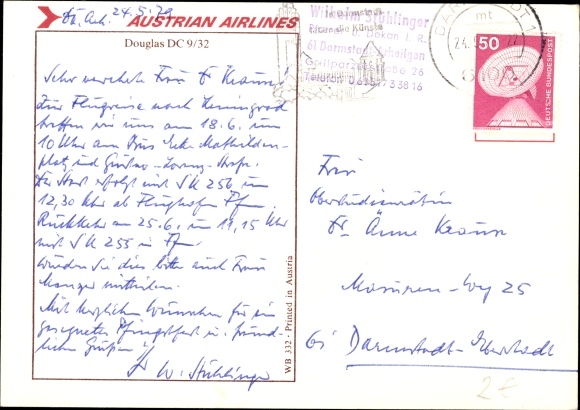 24.5.79
AUSTRIAN AIRLINES
Douglas DC 9/32
Sehr verehrte Frau Dr Kraus!
Zur Flugreise nach Leningrad
treffen wir uns am 18.6. um
10 Uhr am Bus Ecke Mathilden-
platz und Gustav-Lorenz-Str.
Der Start erfolgt mit SU 256 um
12,30 Uhr ab Flughafen Ffm.
Rückkehr am 25.6. um 11,15 Uhr
mit SU 255 in Ffm.
Würden Sie dies bitte auch Frau
mitteilen.
Mit herzlichen Wünschen für ein
gesegnetes Pfingstfest u. freund-
lichen Grüßen
Ihr W. Stühlinger
WB 332 · Printed in Austria
Wilhelm Stühlinger
Dekan i. R.
61 Darmstadt
26
Telefon
die Künste
DARMSTADT 1
mt
24.5.
50
DEUTSCHE BUNDESPOST
Frau
Oberstudienrätin
Dr. Änne Kraus
Masuren-Weg 25
61 Darmstadt-Eberstadt
2€